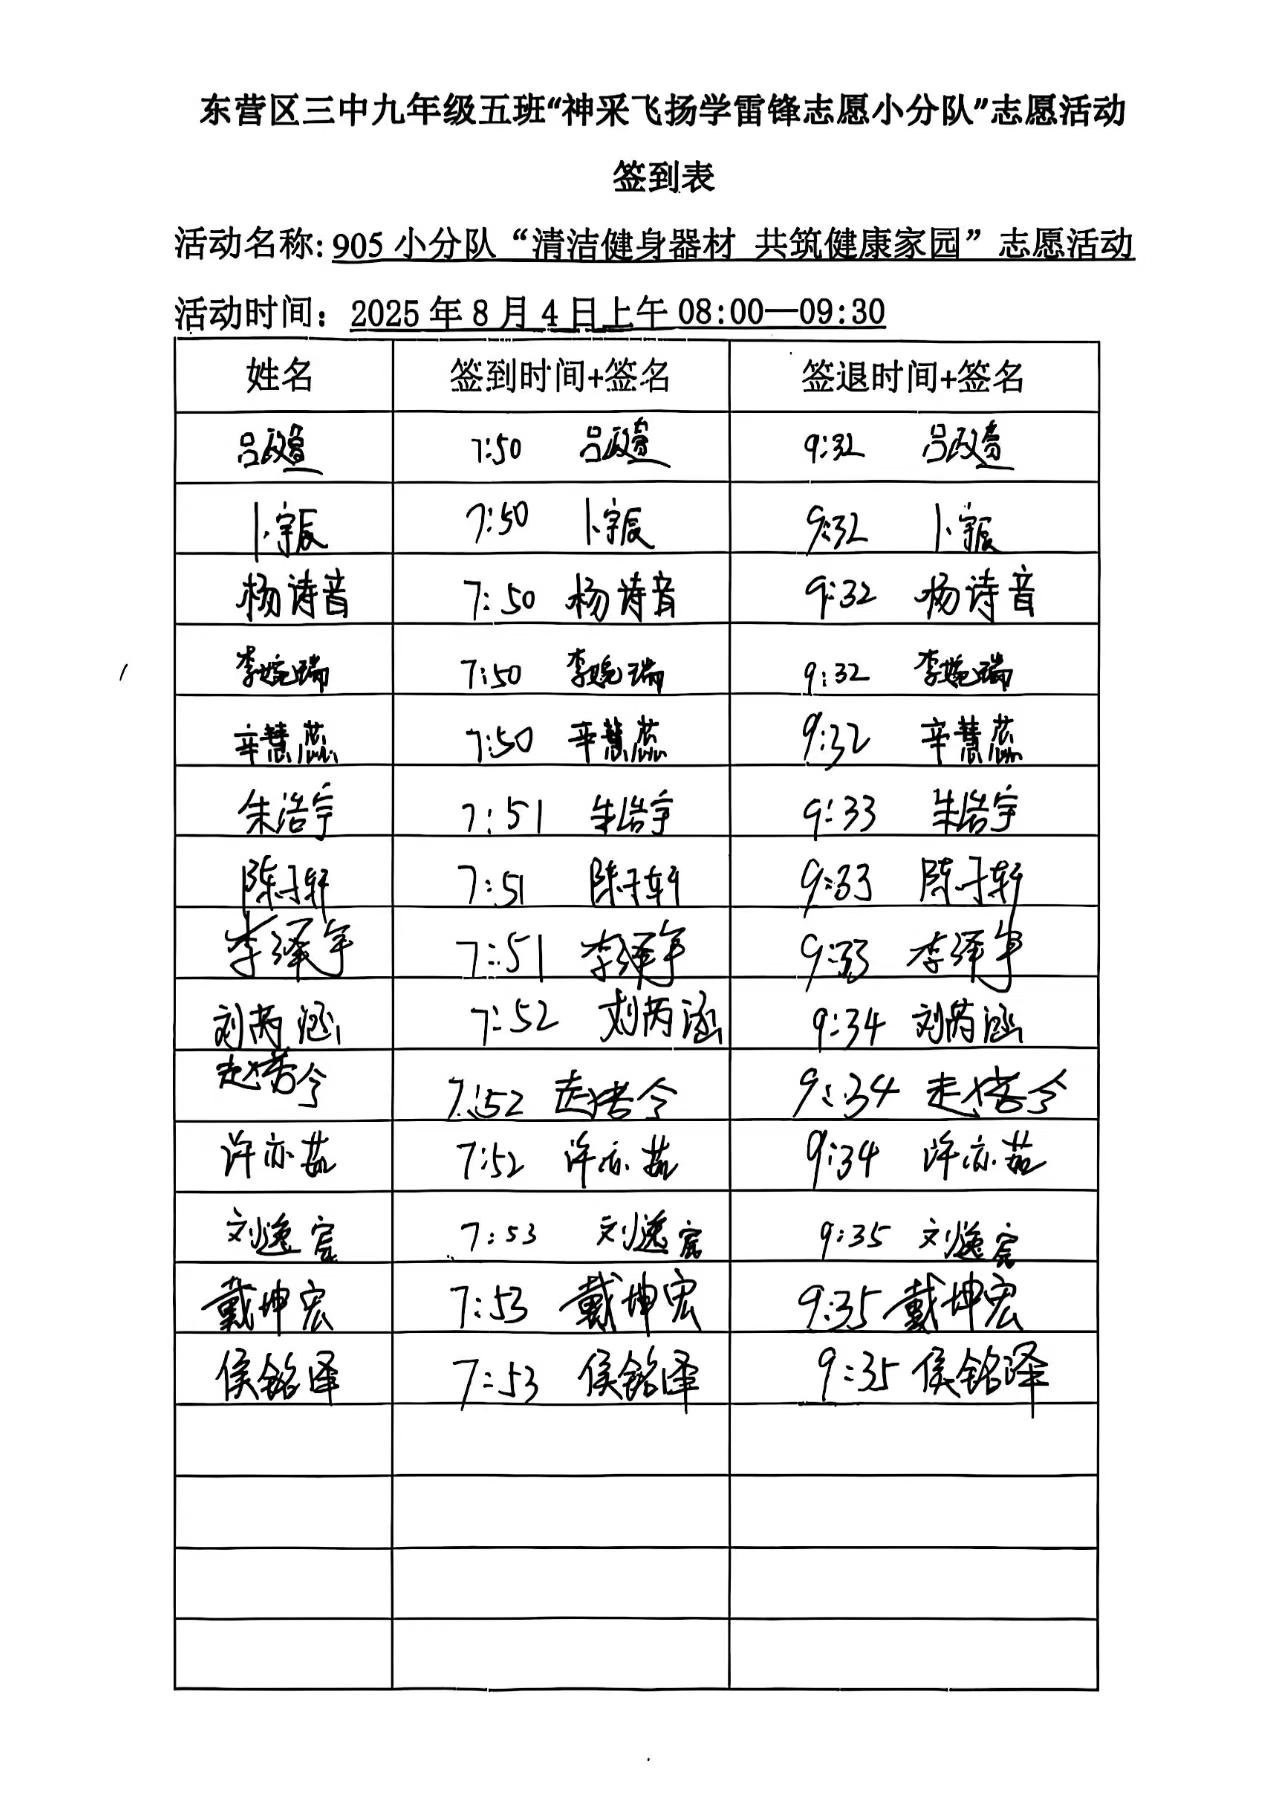 东营区三中九年级五班“神采飞扬学雷锋志愿小分队”志愿活动
签到表
活动名称: 905 小分队“清洁健身器材 共筑健康家园”志愿活动
活动时间：2025 年 8 月 4 日上午 08:00—09:30
姓名 签到时间+签名 签退时间+签名
吕政萱 7:50 吕政萱 9:32 吕政萱
卜宇辰 7:50 卜宇辰 9:32 卜宇辰
杨诗音 7:50 杨诗音 9:32 杨诗音
李婉瑞 7:50 李婉瑞 9:32 李婉瑞
辛慧蕊 7:50 辛慧蕊 9:32 辛慧蕊
朱浩宇 7:51 朱浩宇 9:33 朱浩宇
陈子轩 7:51 陈子轩 9:33 陈子轩
李泽宇 7:51 李泽宇 9:33 李泽宇
刘芮涵 7:52 刘芮涵 9:34 刘芮涵
7:52 9:34
许亦茹 7:52 许亦茹 9:34 许亦茹
刘逸宸 7:53 刘逸宸 9:35 刘逸宸
戴坤宏 7:53 戴坤宏 9:35 戴坤宏
侯铭泽 7:53 侯铭泽 9:35 侯铭泽